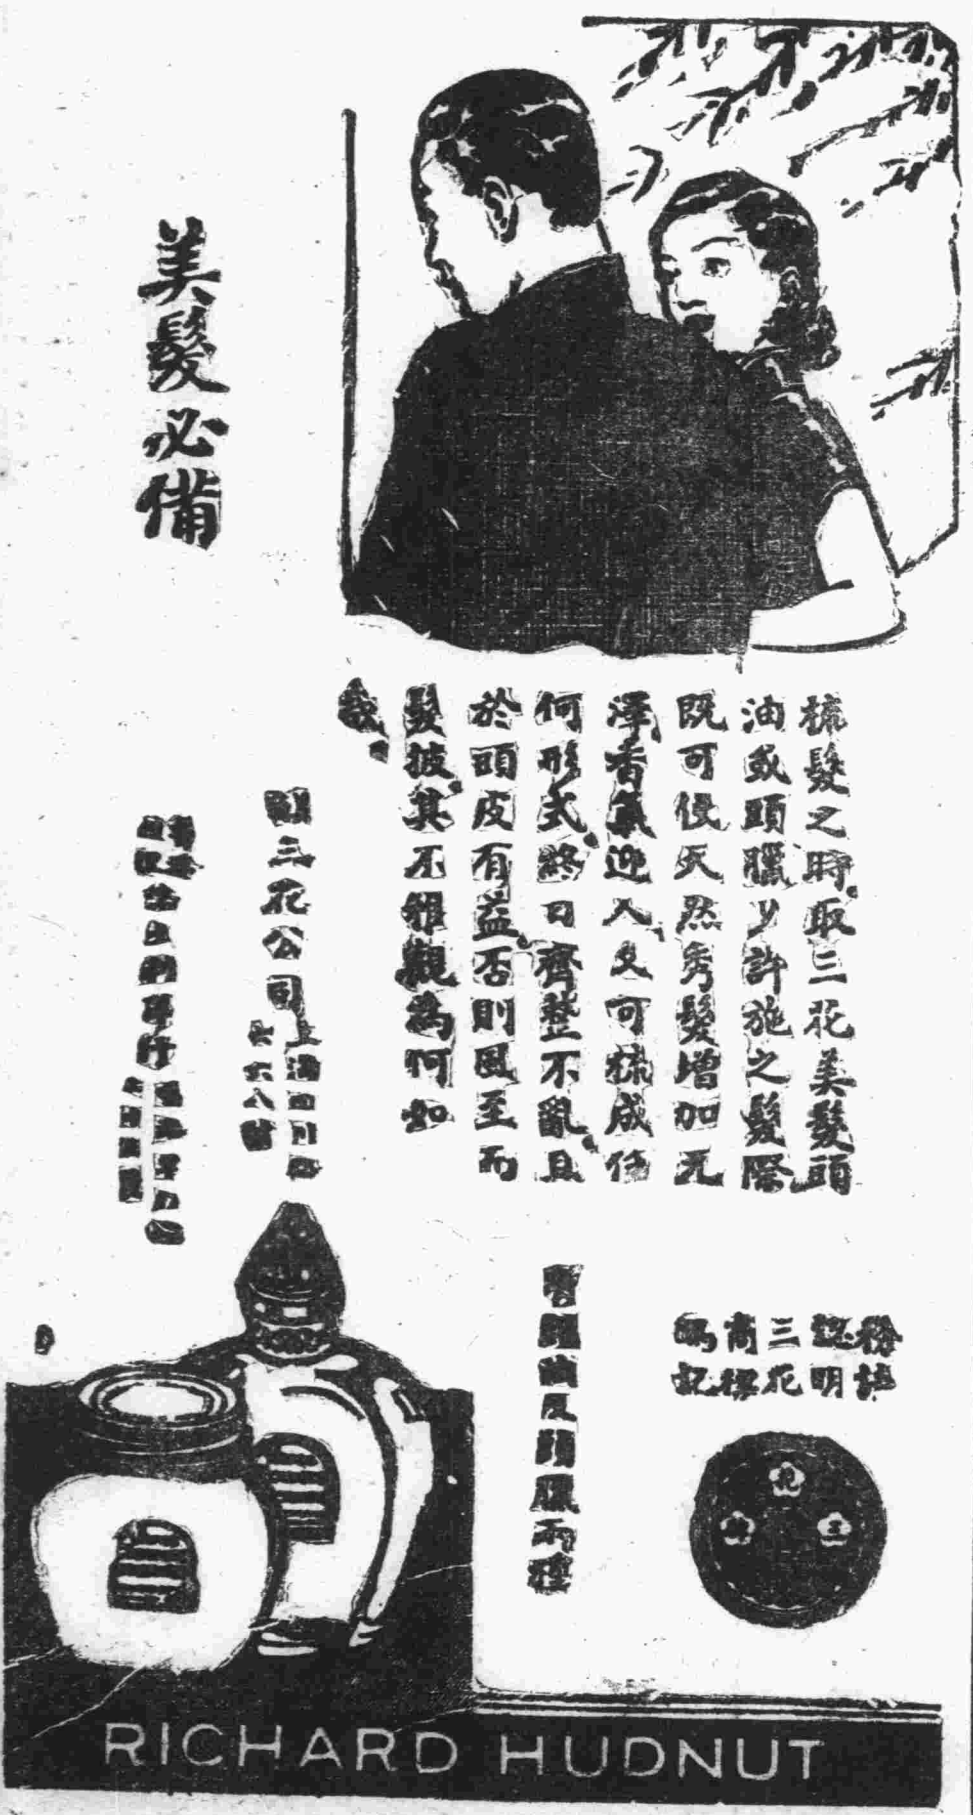 美髮必備
梳髮之時取三花美髮頭
油或頭臘少許施之髮際
既可使天然秀髮增加光
澤香氣迎人又可梳成任
何形式終日齊整不亂且
於頭皮有益否則風至而
髮披其不雅觀為何如
哉
三花公司
有頭油及頭臘兩種
認明三花商標
RICHARD HUDNUT